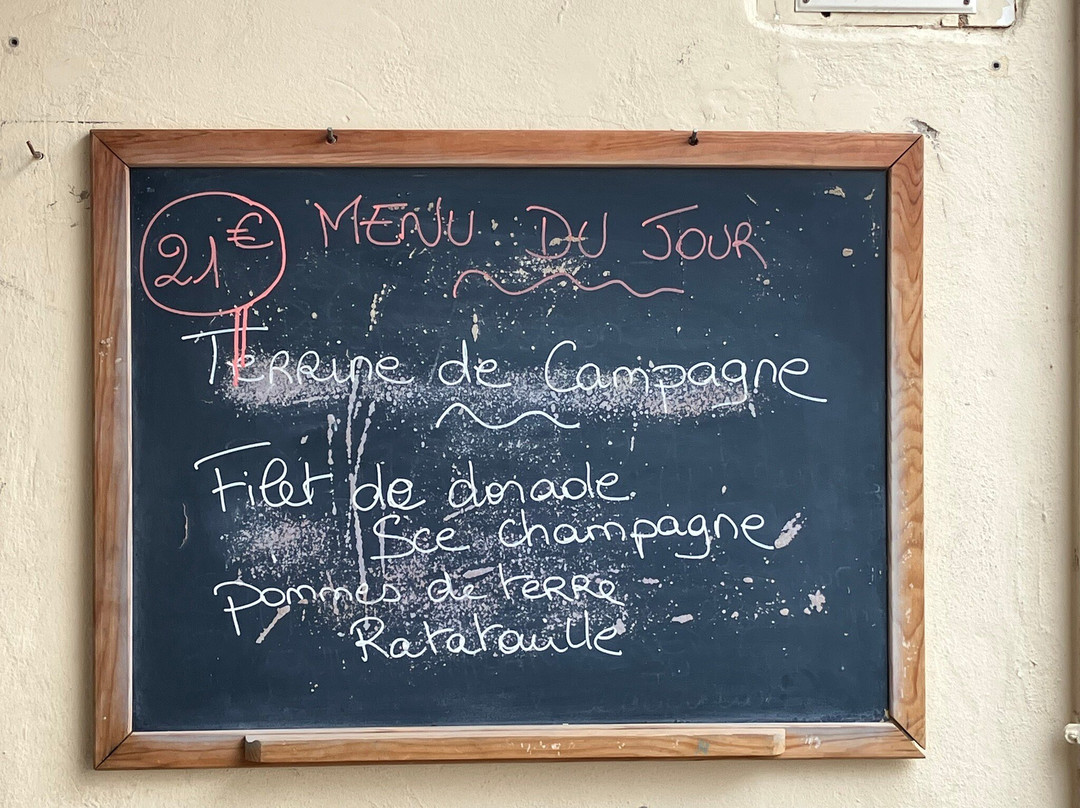 21€ MENU DU JOUR
Terrine de Campagne
Filet de dorade
Sce champagne
pommes de terre
Ratatouille